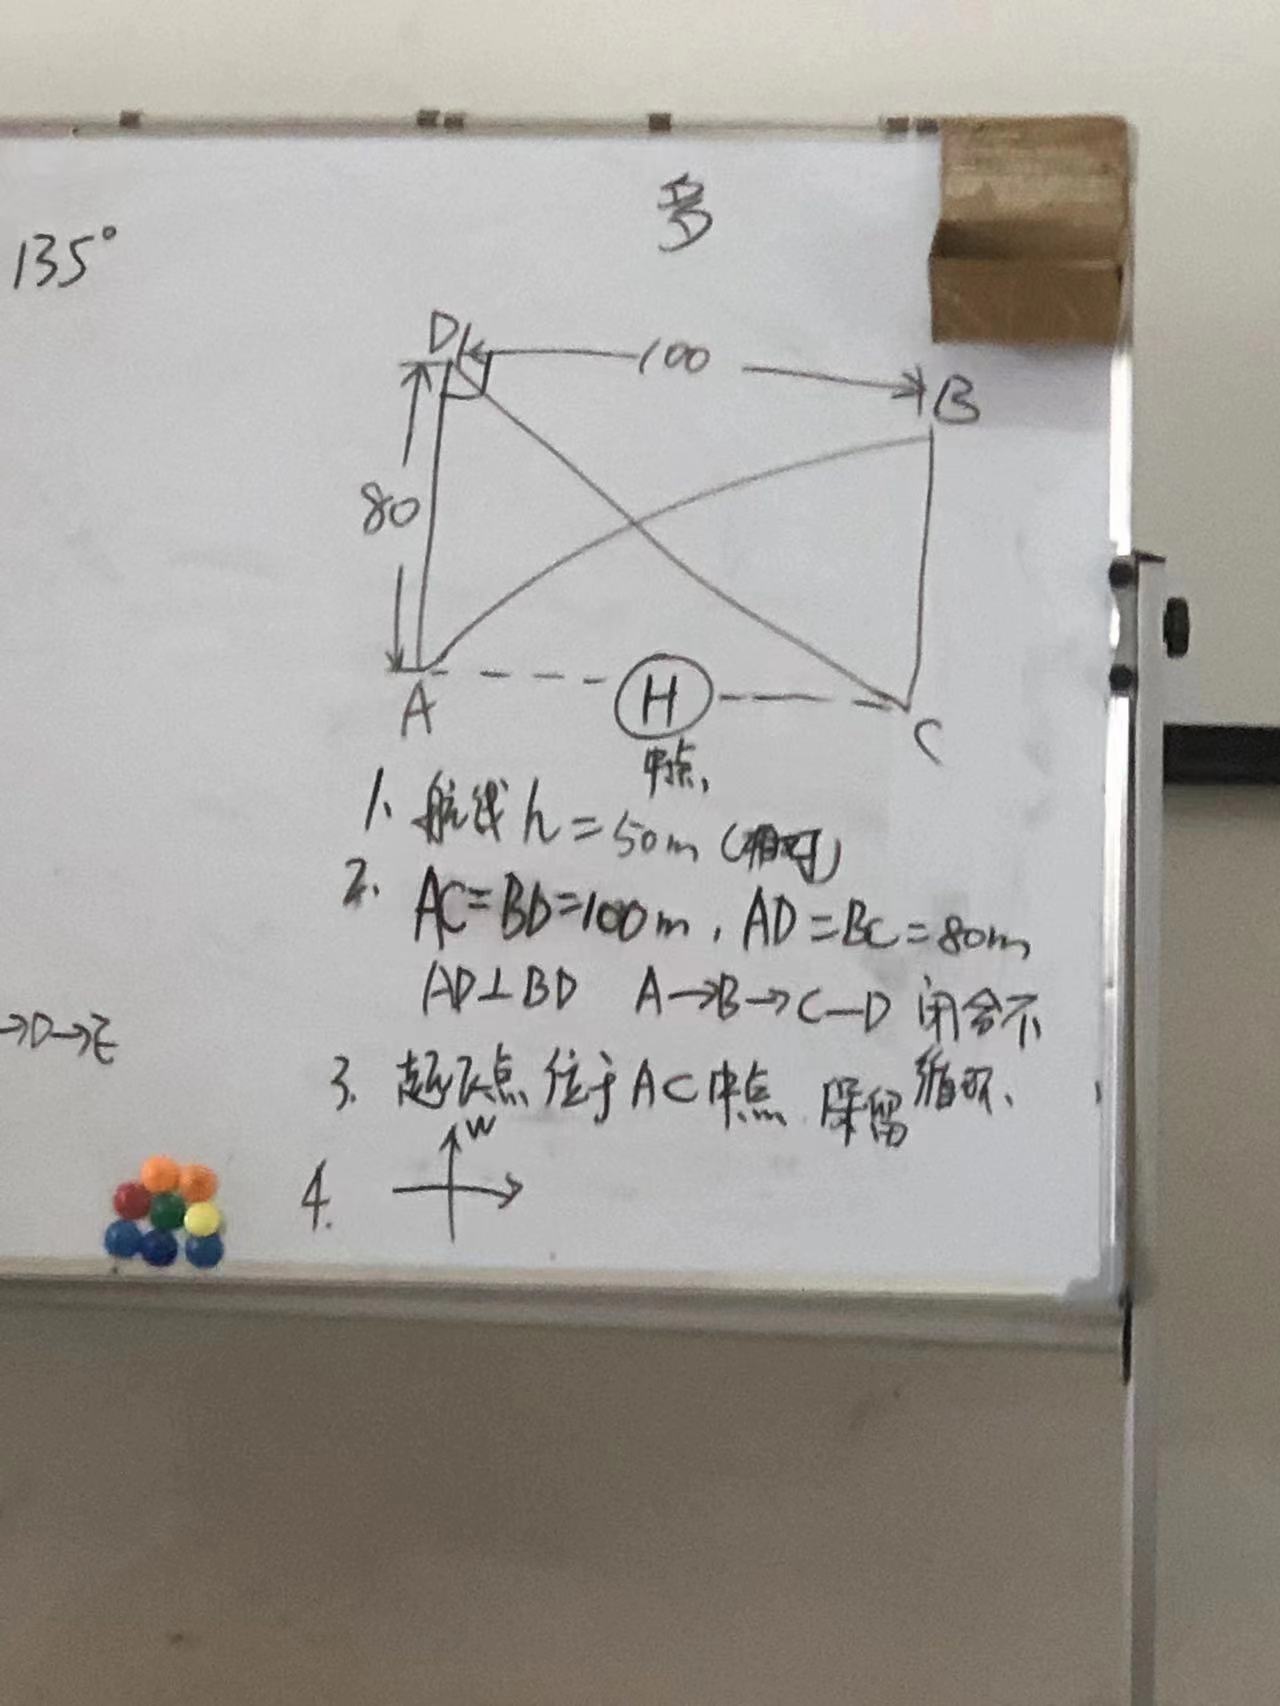 多
135°
D
100
B
80
A
H
C
中点,
1、航线 h=50m(相对)
2、AC=BD=100m, AD=BC=80m
AD⊥BD A→B→C—D 闭合不
循环、
→D→E
3、起飞点位于AC中点 保留
W
4.